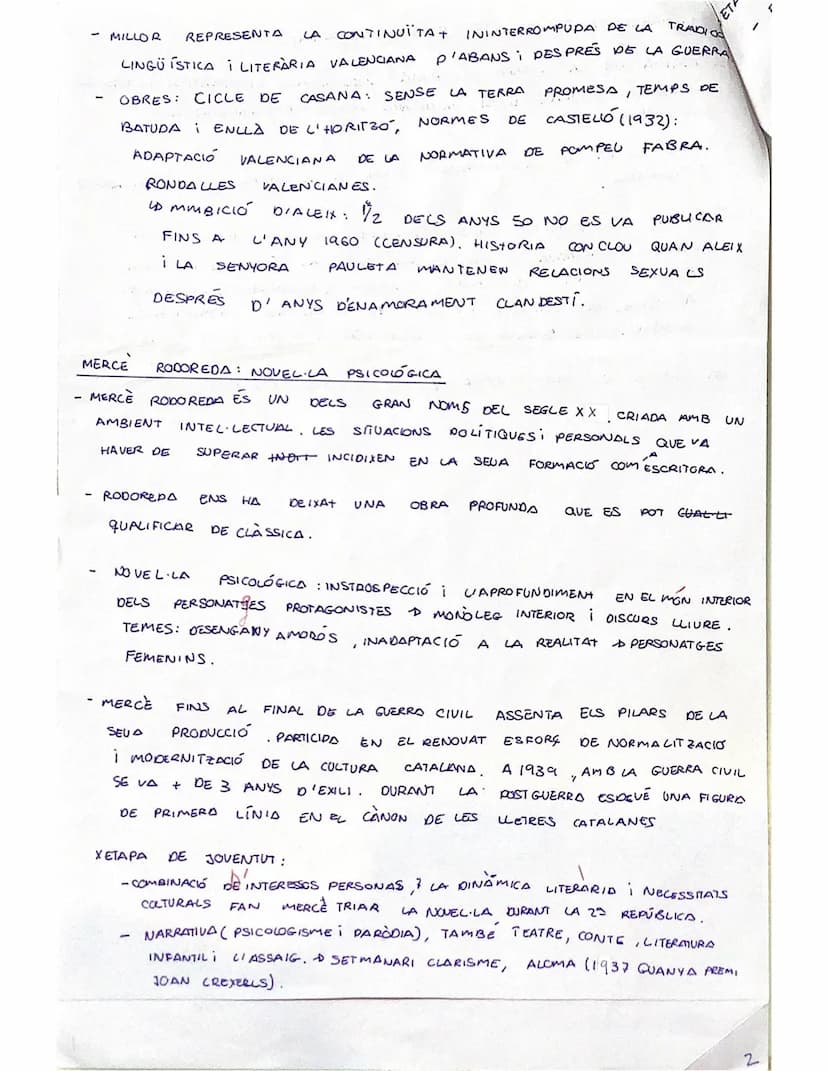 - MILLOR REPRESENTA LA CONTINUÏTAT ININTERROMPUDA DE LA TRADICIÓ
LINGÜÍSTICA i LITERÀRIA VALENCIANA D'ABANS i DESPRÉS DE LA GUERRA
- OBRES: CICLE DE CASANA: SENSE LA TERRA PROMESA, TEMPS DE
BATUDA i ENLLÀ DE L'HORITZÓ, NORMES DE CASTELLÓ (1932):
ADAPTACIÓ VALENCIANA DE LA NORMATIVA DE POMPEU FABRA.
RONDALLES VALENCIANES.
↳ MMBICIÓ D'ALEIX: 1/2 DELS ANYS 50 NO ES VA PUBLICAR
FINS A L'ANY 1960 (CENSURA). HISTORIA CONCLOU QUAN ALEIX
i LA SENYORA PAULETA MANTENEN RELACIONS SEXUALS
DESPRÉS D'ANYS D'ENAMORAMENT CLANDESTÍ.
MERCÈ RODOREDA: NOVEL·LA PSICOLÓGICA
- MERCÈ RODOREDA ÉS UN DELS GRAN NOMS DEL SEGLE XX. CRIADA AMB UN
AMBIENT INTEL·LECTUAL. LES SITUACIONS POLÍTIQUES i PERSONALS QUE VA
HAVER DE SUPERAR INCIDIXEN EN LA SEUA FORMACIÓ COM A ESCRITORA.
- RODOREDA ENS HA DEIXAT UNA OBRA PROFUNDA QUE ES POT
QUALIFICAR DE CLÀSSICA.
- NOVEL·LA PSICOLÓGICA: INSTROSPECCIÓ i L'APROFUNDIMENT EN EL MÓN INTERIOR
DELS PERSONATGES PROTAGONISTES → MONÒLEG INTERIOR i DISCURS LLIURE.
TEMES: DESENGANY AMORÓS, INADAPTACIÓ A LA REALITAT → PERSONATGES
FEMENINS.
- MERCÈ FINS AL FINAL DE LA GUERRA CIVIL ASSENTA ELS PILARS DE LA
SEUA PRODUCCIÓ. PARTICIPA EN EL RENOVAT ESFORÇ DE NORMALITZACIÓ
i MODERNITZACIÓ DE LA CULTURA CATALANA. A 1939, AMB LA GUERRA CIVIL
SE VA + DE 3 ANYS D'EXILI. DURANT LA POSTGUERRA ESDEVÉ UNA FIGURA
DE PRIMERA LÍNIA EN EL CÀNON DE LES LLETRES CATALANES
X ETAPA DE JOVENTUT:
- COMBINACIÓ D'INTERESSOS PERSONAS, ? LA DINÀMICA LITERÀRIA i NECESSITATS
CULTURALS FAN MERCÈ TRIAR LA NOVEL·LA DURANT LA 2ª REPÚBLICA.
- NARRATIVA (PSICOLOGISME i PARÒDIA), TAMBÉ TEATRE, CONTE, LITERATURA
INFANTIL i L'ASSAIG. → SETMANARI CLARISME, ALOMA (1937 GUANYA PREMI
JOAN CREXELLS).
2